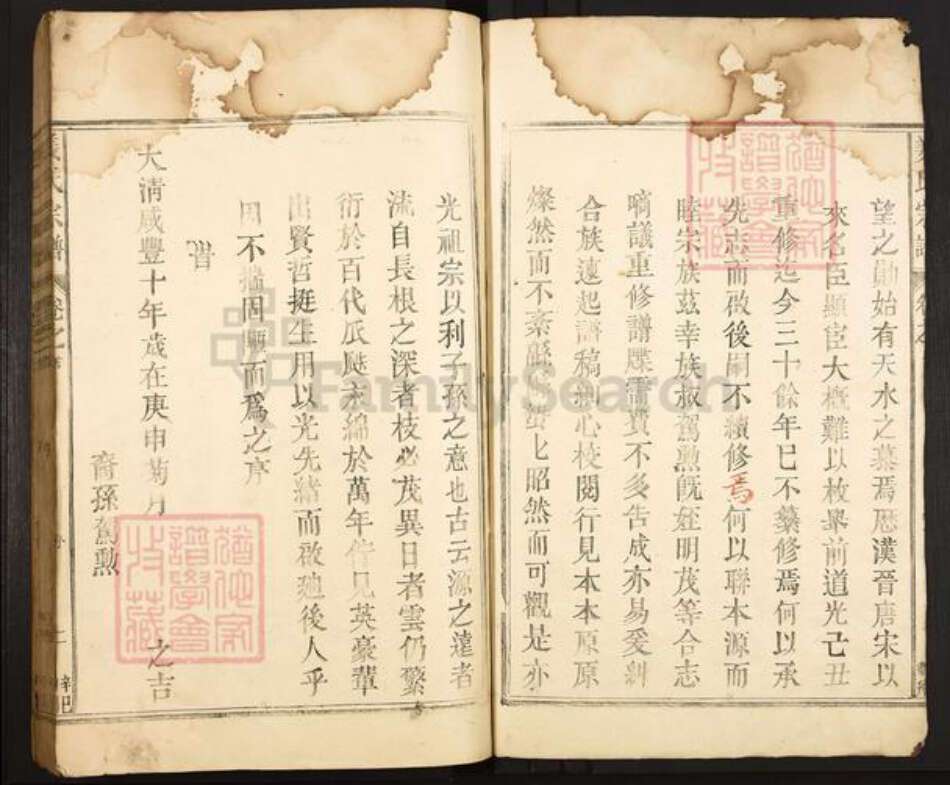 望之勛始有天水之慕焉歷漢晉唐宋以
來名臣顯宦大概難以枚舉前道光己丑
重修迄今三十餘年已不纂修焉何以承
先志而啟後嗣不續修焉何以聯本源而
睦宗族茲幸族叔駕勲旣姪明茂等合志
嘀議重修譜牒需費不多告成亦易爰糾
合族遠起譜稿細心校閱行見本本原原
燦然而不紊繇匕昭然而可觀是亦
光祖宗以利子孫之意也古云源之遠者
流自長根之深者枝必茂異日者雲仍繁
衍於百代瓜瓞永綿於萬年佇見英豪輩
出賢哲挺生用以光先緒而啟廸後人乎
因不揣固陋而為之序
大清咸豐十年歲在庚申菊月
之吉
裔孫駕勲
氏宗譜
卷之
FamilySearch
譜學會
收藏